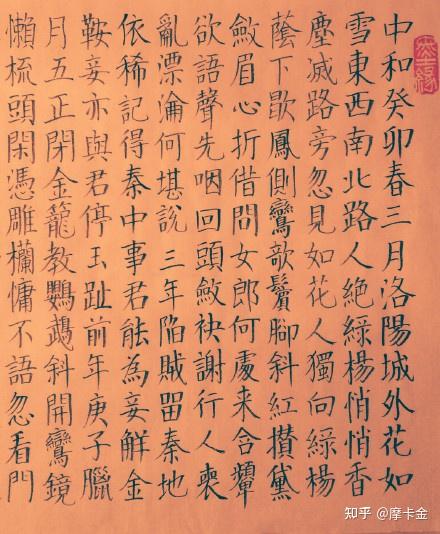 中和癸卯春三月洛陽城外花如
雪東西南北路人絕綠楊悄悄香
塵滅路旁忽見如花人獨向綠楊
蔭下歇鳳側鸞欹鬢腳斜紅攢黛
斂眉心折借問女郎何處来含顰
欲語聲先咽回頭斂袂謝行人喪
亂漂淪何堪說三年陷賊畱秦地
依稀記得秦中事君能為妾解金
鞍妾亦與君停玉趾前年庚子臘
月五正閉金籠教鸚鵡斜開鸞鏡
懶梳頭閑憑雕欄慵不語忽看門
知乎 @摩卡金